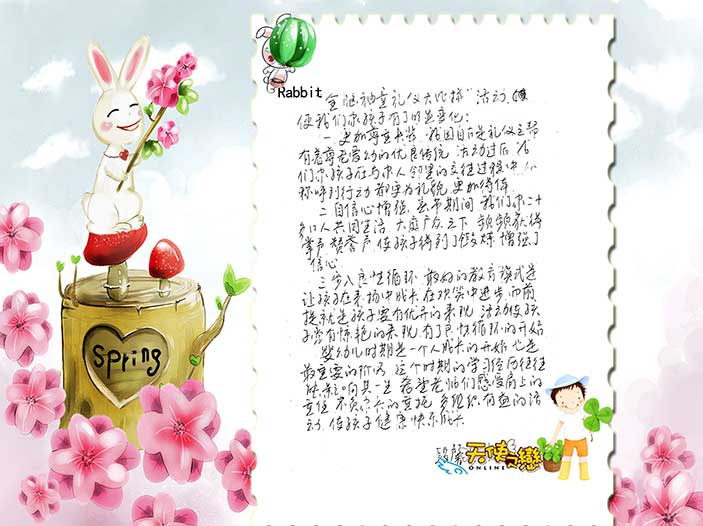 Rabbit
礼仪大比拼"活动,
使我们家孩子有了明显变化:
一 更加尊重长辈 我国自古是礼仪之邦
有着尊老爱幼的优良传统 活动过后 我
们家孩子在与家人邻里的交往过程中
称呼到行动 都更为礼貌 更加得体
二 自信心增强 春节期间 我们家二十
知人共同生活 大庭广众之下 频频获得
掌声 赞誉声 使孩子得到了锻炼 增强了
信心
三 步入良性循环 最好的教育模式是
让孩子在表扬中成长 在欢笑中进步 而前
提就是孩子要有优异的表现 活动使孩
子常有惊艳的表现 有了良性循环的开始
婴幼儿时期是一个人成长的开始 也是
最重要的阶段 这个时期的学习经历往往
能影响其一生 希望老师们感受肩上的
责任 不负家长的重托 多组织有益的活
动 使孩子健康快乐成长
天使之戀
ONLINE
spring